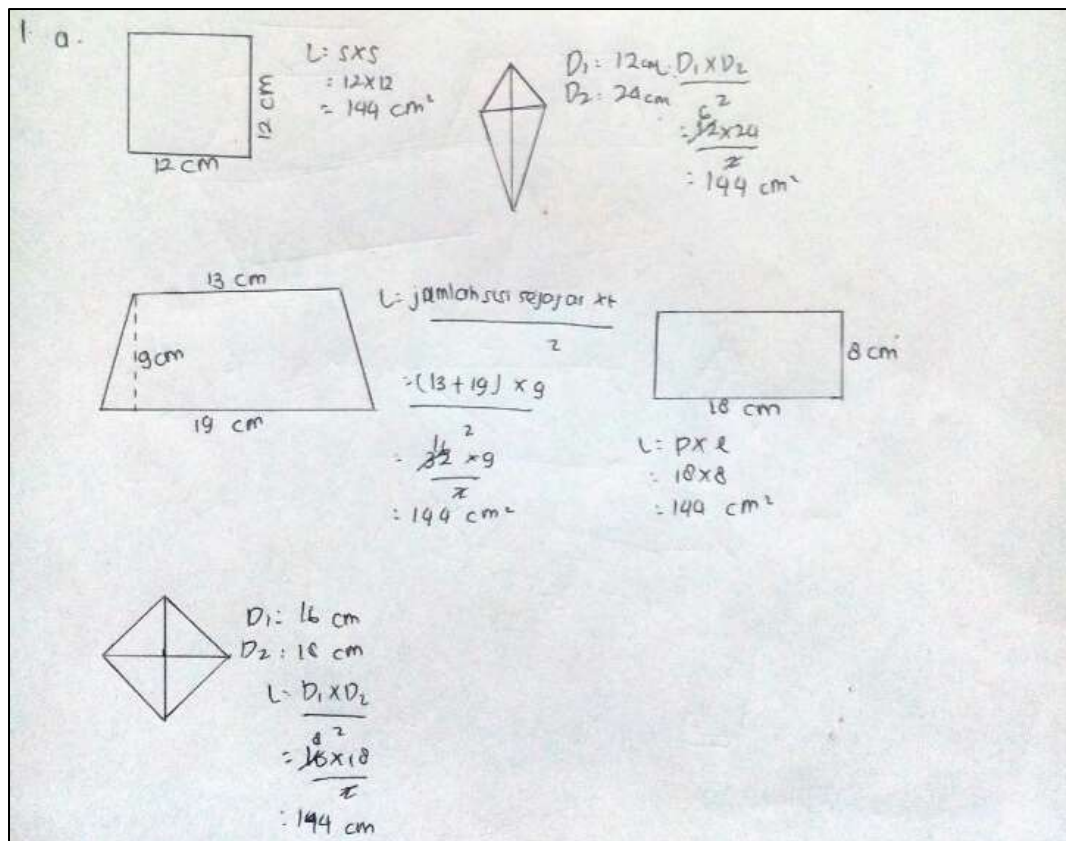 1. a.
L = S x S
= 12 x 12
= 144 cm²
12 cm
12 cm
D₁ : 12 cm
D₂ : 24 cm
D₁ x D₂
2
6
= 12 x 24
2
= 144 cm²
13 cm
9 cm
19 cm
L = jumlah sisi sejajar x t
2
= (13 + 19) x 9
2
16
= 32 x 9
2
= 144 cm²
8 cm
18 cm
L = P x l
= 18 x 8
= 144 cm²
D₁ : 16 cm
D₂ : 18 cm
L = D₁ x D₂
2
8
= 16 x 18
2
= 144 cm